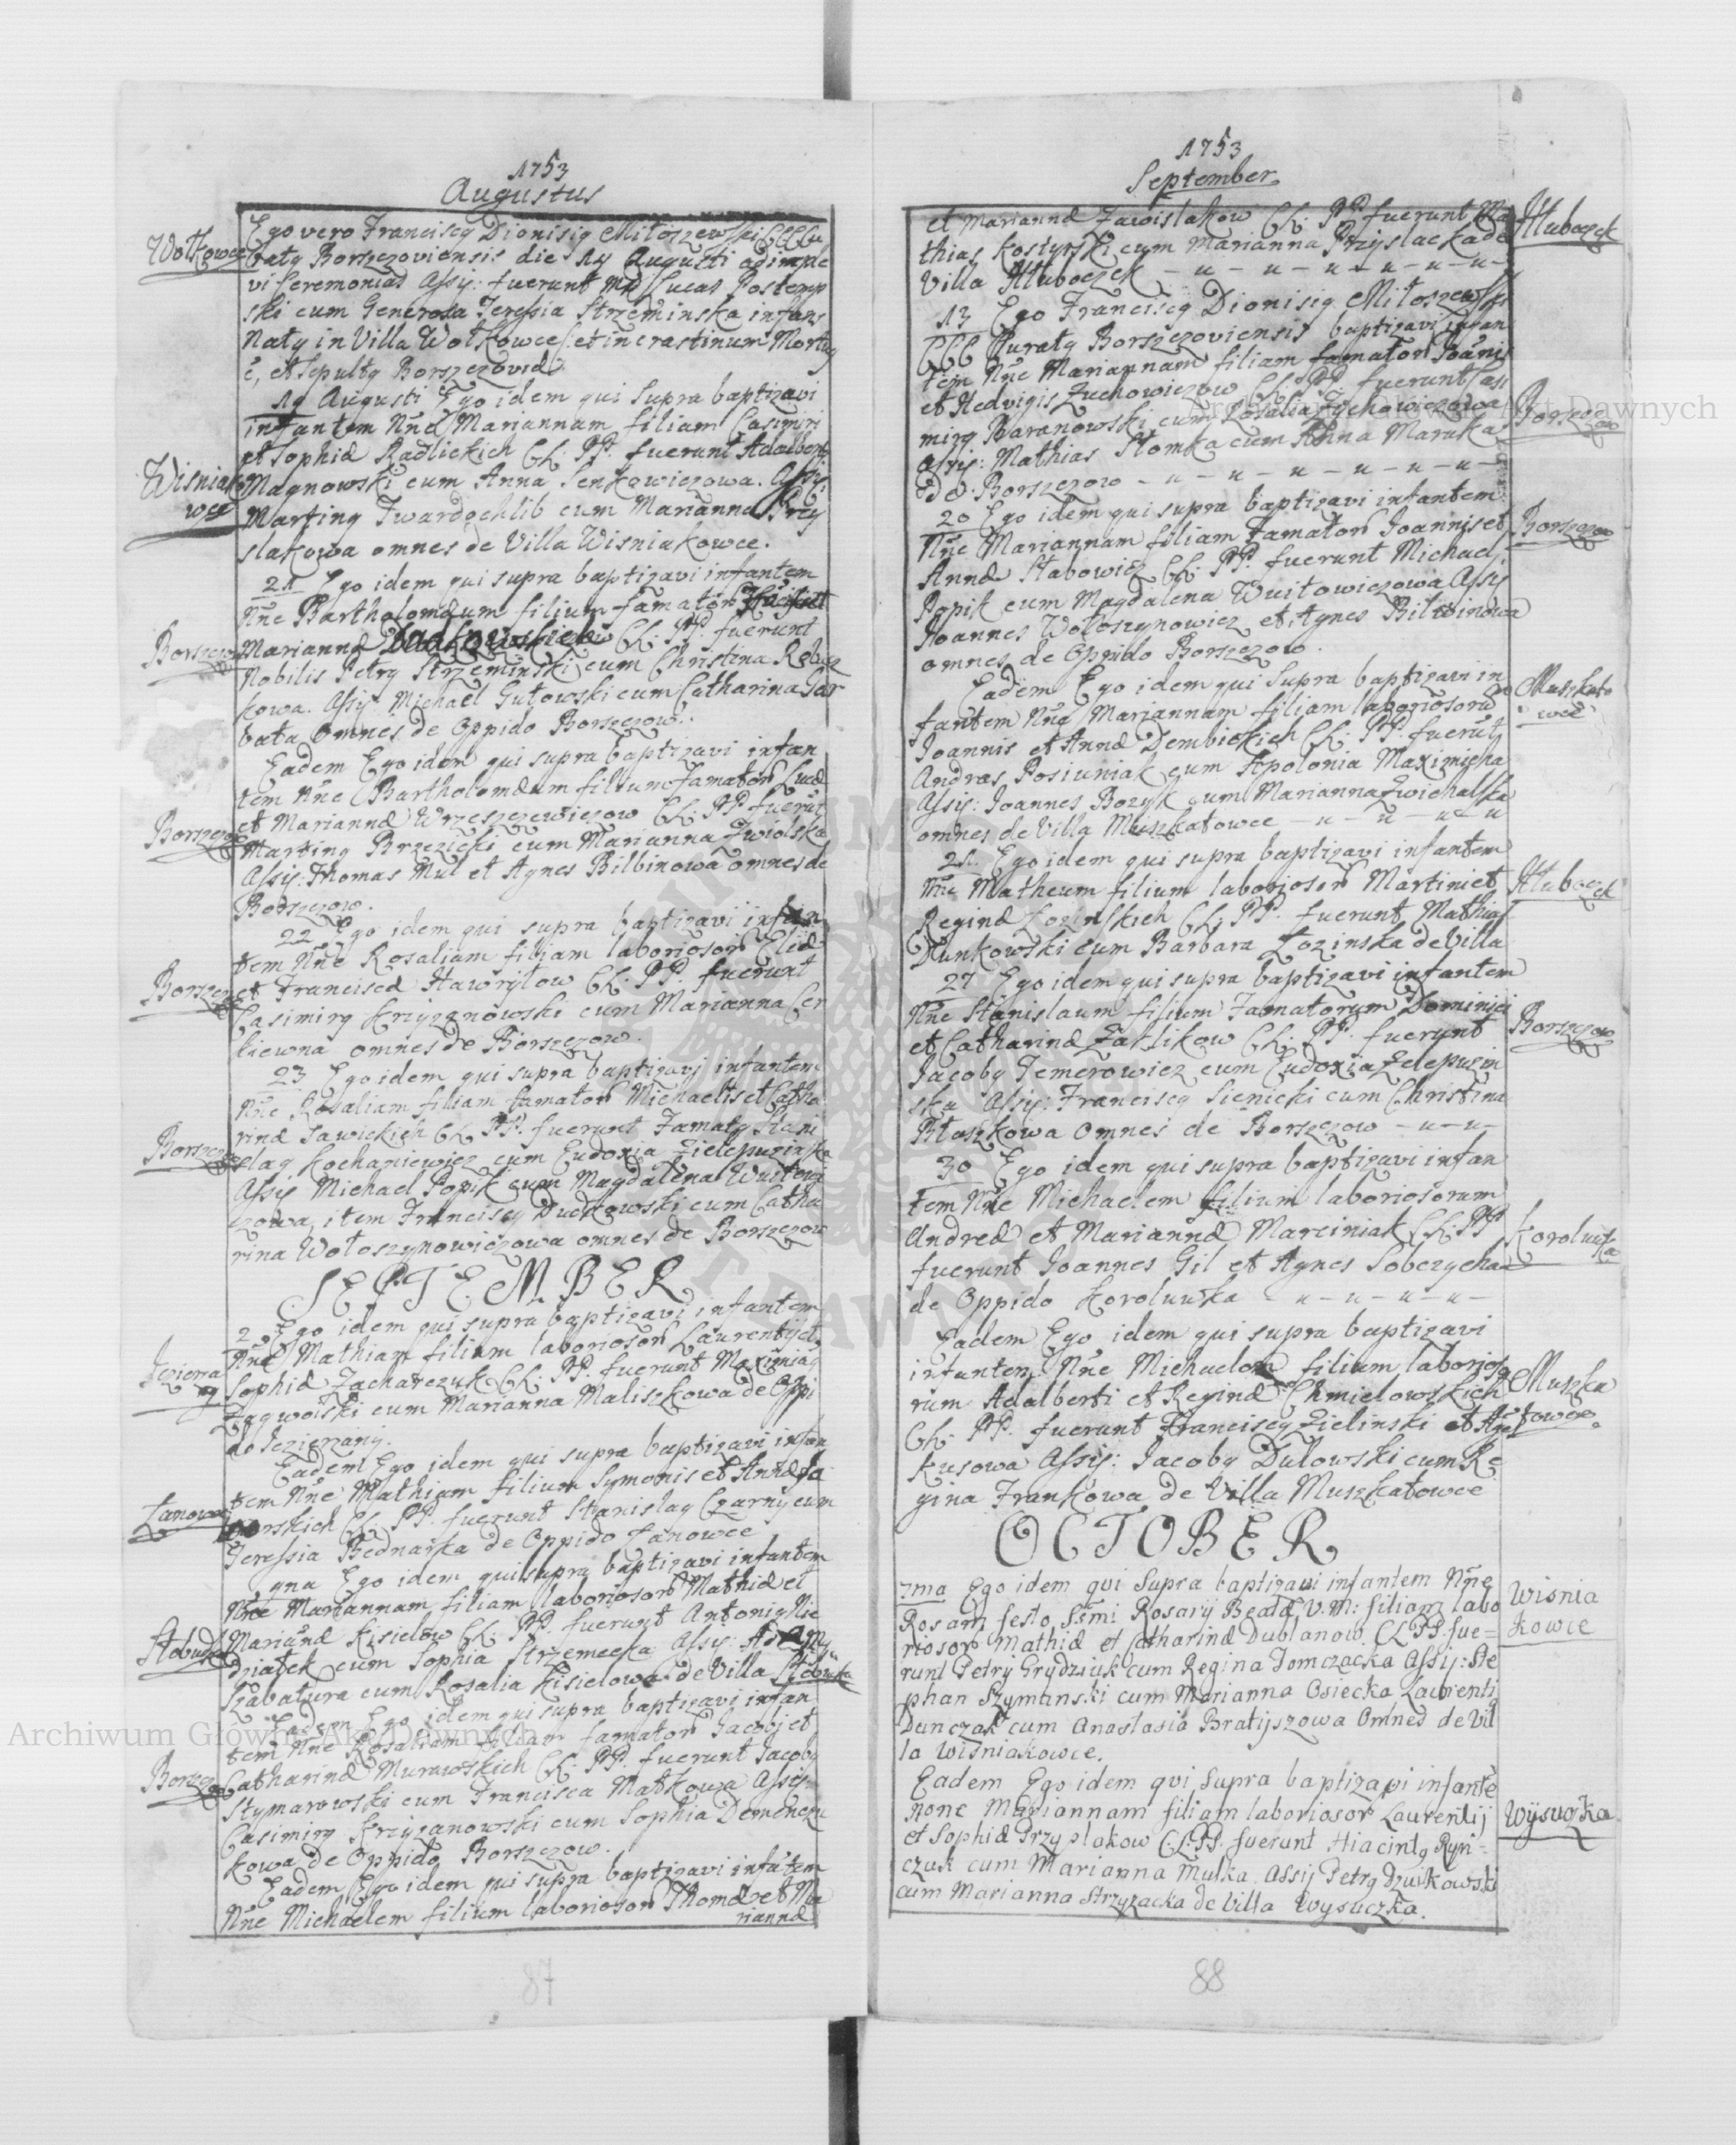 1753
Augustus
Wołkowce
Ego vero Franciscq Dionisiq Miłoszewski CCCCu
ratq Borszczoviensis die 14 Augusti adimple
vi Ceremonias Assis: fuerunt Md Lucas Postemp
ski cum Generosa Teressia Strzeminska infans
Natq in Villa Wołkowce et in crastinum Mortuq
e, et Sepultq Borszczoviæ
19 Augusti Ego idem qui Supra baptizavi
infantem Nñe Mariannam filiam Casimiri
et Sophiæ Radlickich CL: PP. fuerunt Adalbertq
Wisniak
wce
Magnowski cum Anna Senkowiczowa. Assis:
Martinq Twardochlib cum Marianna Przy
slakowa omnes de Villa Wisniakowce.
21 Ego idem qui supra baptizavi infantem
Nñe Bartholomæum filium famator
Borszczow
Mariannæ CL: PP. fuerunt
Nobilis Petrq Strzeminski cum Christina
kowa. Assis: Michael Gutowski cum Catharina Gar
bata Omnes de Oppido Borszczow.
Eadem Ego idem qui supra baptizavi infan
tem Nñe Bartholomæum filium Famator Lucæ
Borszczow
et Mariannæ Wrzeszczewiczow CL: PP. fuerut
Martinq Brzezicki cum Marianna Zwiolska
Assis: Thomas Mul et Agnes Bilbinowa omnes de
Borszczow.
22 Ego idem qui supra baptizavi infan
tem Nñe Rosaliam filiam laboriosor Eliæ
Borszczow
et Franciscæ Hawryłow CL: PP. fuerunt
Casimirq Krzyzanowski cum Marianna Cer
kiewna omnes de Borszczow.
23 Ego idem qui supra baptizavi infantem
Nñe Rosaliam filiam famator Michaelis et Catha
Borszczow
rinæ Sawickich CL: PP. fuerunt Famatq Stani
slaq Kochaniewicz cum Eudoxia Zielepuzinska
Assis Michael Popik cum Magdalena Wuitowi
czowa, item Franciscq Duckowski cum Catha
rina Wołoszynowiczowa omnes de Borszczow
SEPTEMBER
2 Ego idem qui supra baptizavi infantem
Nñe Mathiam filium laboriosor Laurentij et
Sophiæ Zacharczuk CL: PP. fuerunt Maximiaq
Zaqwolski cum Marianna Maliszkowa de Oppi
do Iezierzany.
Eadem Ego idem qui supra baptizavi infan
tem Nñe Mathiam filium Symonis et Annæ Ja
Łanowce
worskich CL: PP. fuerunt Stanislaq Czarny cum
Teressia Bednarka de Oppido Łanowce
9na Ego idem qui supra baptizavi infantem
Nñe Mariannam filiam laboriosor Mathiæ et
Mariannæ Kisielow CL: PP. fuerunt Antoniq Nie
działek cum Sophia Strzemecka Assis:
Szabatura cum Rosalia Kisielowa de Villa
Eadem Ego idem qui supra baptizavi infan
tem Nñe Rosaliam filiam famator Jacobi et
Borszczow
Catharinæ Murawskich CL: PP. fuerunt Jacobq
Stymarowski cum Francisca Matkowa Assis:
Casimirq Krzyzanowski cum Sophia Demenczu
kowa de Oppido Borszczow.
Eadem Ego idem qui supra baptizavi infatem
Nñe Michaelem filium laboriosor Thomæ et Ma
riannæ
87
1753
September
et Mariannæ Zawislakow CL: PP. fuerunt Ma
thias Kostyrski cum Marianna Przyslacka de
Villa Hluboczek
Hluboczek
13 Ego Franciscq Dionisiq Miłoszewski
CCC Curatq Borszczoviensis baptizavi infan
tem Nñe Mariannam filiam famator Joañis
et Hedvigis Zuchowiczow CL: PP. fuerunt Cass
mirq Baranowski cum Rosalia Zychowiczowa
Borszczow
Assis: Mathias Słomka cum Anna Maruka
de Borszczow
20 Ego idem qui supra baptizavi infantem
Borszczow
Nñe Mariannam filiam Famator Joannis et
Annæ Słabowicz CL: PP. fuerunt Michael
Popik cum Magdalena Wuitowiczowa Assis
Joannes Wołoszynowicz et Agnes Bilwinowa
omnes de Oppido Borszczow.
Eadem Ego idem qui supra baptizavi in
Muszkato
wce
fantem Nñe Mariannam filiam laboriosoru
Joannis et Annæ Dembickich CL: PP. fuerut
Andreas Posiuniak cum Apolonia Maximicha
Assis: Joannes Bozyk cum Marianna Zwichalska
omnes de Villa Muszkatowce
21 Ego idem qui supra baptizavi infantem
Hluboczek
Nñe Matheum filium laboriosor Martini et
Reginæ Łozinskich CL: PP. fuerunt Mathias
Dunkowski cum Barbara Łozinska de Villa
27 Ego idem qui supra baptizavi infantem
Nñe Stanislaum filium Famatorum Dominici
Borszczow
et Catharinæ Zarlikow CL: PP. fuerunt
Jacobq Temerowicz cum Eudoxia Zelepuzin
ska Assis: Franciscq Sienicki cum Christina
Błaszkowa omnes de Borszczow
30 Ego idem qui supra baptizavi infan
tem Nñe Michaelem filium laboriosorum
Andreæ et Mariannæ Marciniak CL: PP
Koroluwka
fuerunt Joannes Gil et Agnes Sobczycha
de Oppido Koroluwka
Eadem Ego idem qui supra baptizavi
infantem Nñe Michaelem filium laborioso
Muszka
towce
rum Adalberti et Reginæ Chmielowskich
CL: PP. fuerunt Franciscq Zielinski et
kusowa Assis: Jacobq Dulowski cum Re
gina Frankowa de Villa Muszkatowce
OCTOBER
7ma Ego idem qui Supra baptizavi infantem Nñe
Wisnia
kowce
Rosam festo Ssmi Rosarij Beatæ V.M: filiam labo
riosor Mathiæ et Catharinæ Dublanow CL PP. fue=
runt Petrij Grydziuk cum Regina Tomczacka Assij: Ste
phan Szymanski cum Marianna Osiecka Laurenti
Dunczak cum Anastasia Bratijszowa Omnes de Vil
la Wisniakowce.
Eadem Ego idem qvi Supra baptizavi infante
none Mariannam filiam laboriosor Laurentij
Wysuczka
et Sophiæ Przyplakow CL PP. fuerunt Hiacintq Ryn=
czuk cum Marianna Mulka Assij Petrq Dzuikowski
cum Marianna Strzyzacka de Villa Wysuczka.
88
Archiwum Główne Akt Dawnych
Archiwum Główne Akt Dawnych